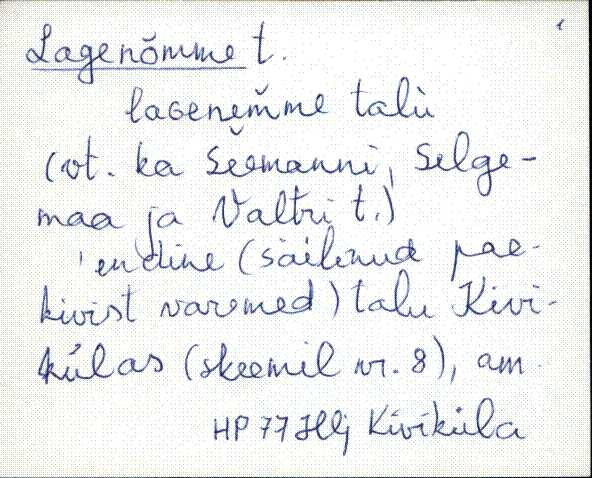 Lagenõmme t.
lagene͔m̆me talù
(vt. ka Seemanni, Selge-
maa ja Valtri t.)
'endine (säilinud pae-
kivist varemed) talu Kivi-
külas (skeemil nr. 8), am
HP 77 Hlj Kiviküla